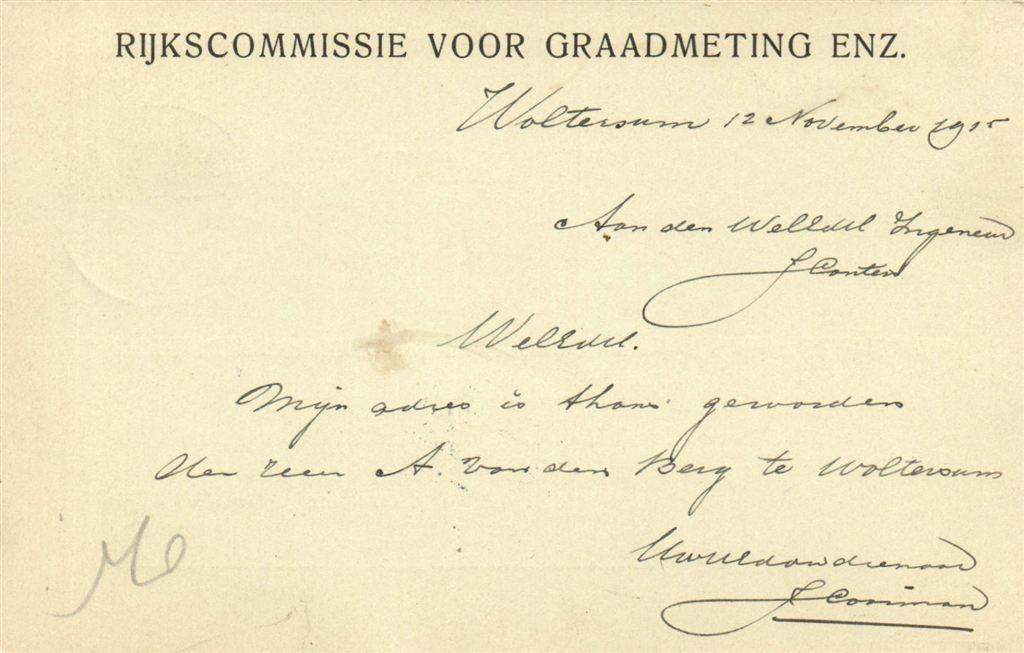 RIJKSCOMMISSIE VOOR GRAADMETING ENZ.
Woltersum 12 November 1915
Aan den WelEdel Ingenieur
J Canters
WelEdel.
Mijn adres is thans geworden
den Heer A. van den Berg te Woltersum
UwEddwdienaar
J Cooiman